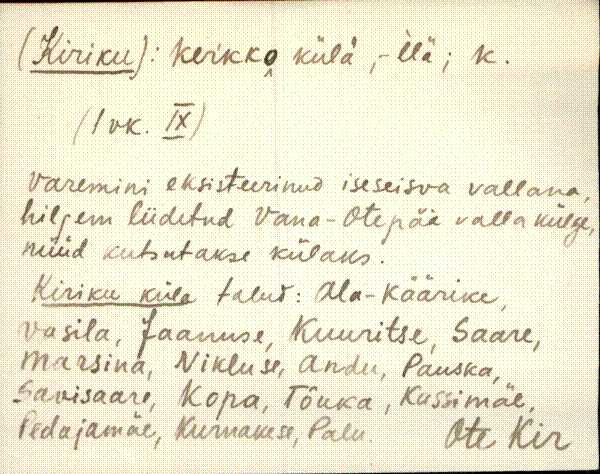 (Kiriku): kerikko külä, -llä; k.
(1 vk. IX)
Varemini eksisteerinud iseseisva vallana,
hiljem liidetud Vana-Otepää valla külge,
nüüd kutsutakse külaks.
Kiriku küla talud: Ala-Käärike,
Vasila, Jaanuse, Kuuritse, Saare,
Marsina, Nikluse, Andu, Pauska,
Savisaare, Kopa, Tõuka, Kussimäe,
Pedajamäe, Kurnakese, Palu. Ote Kir